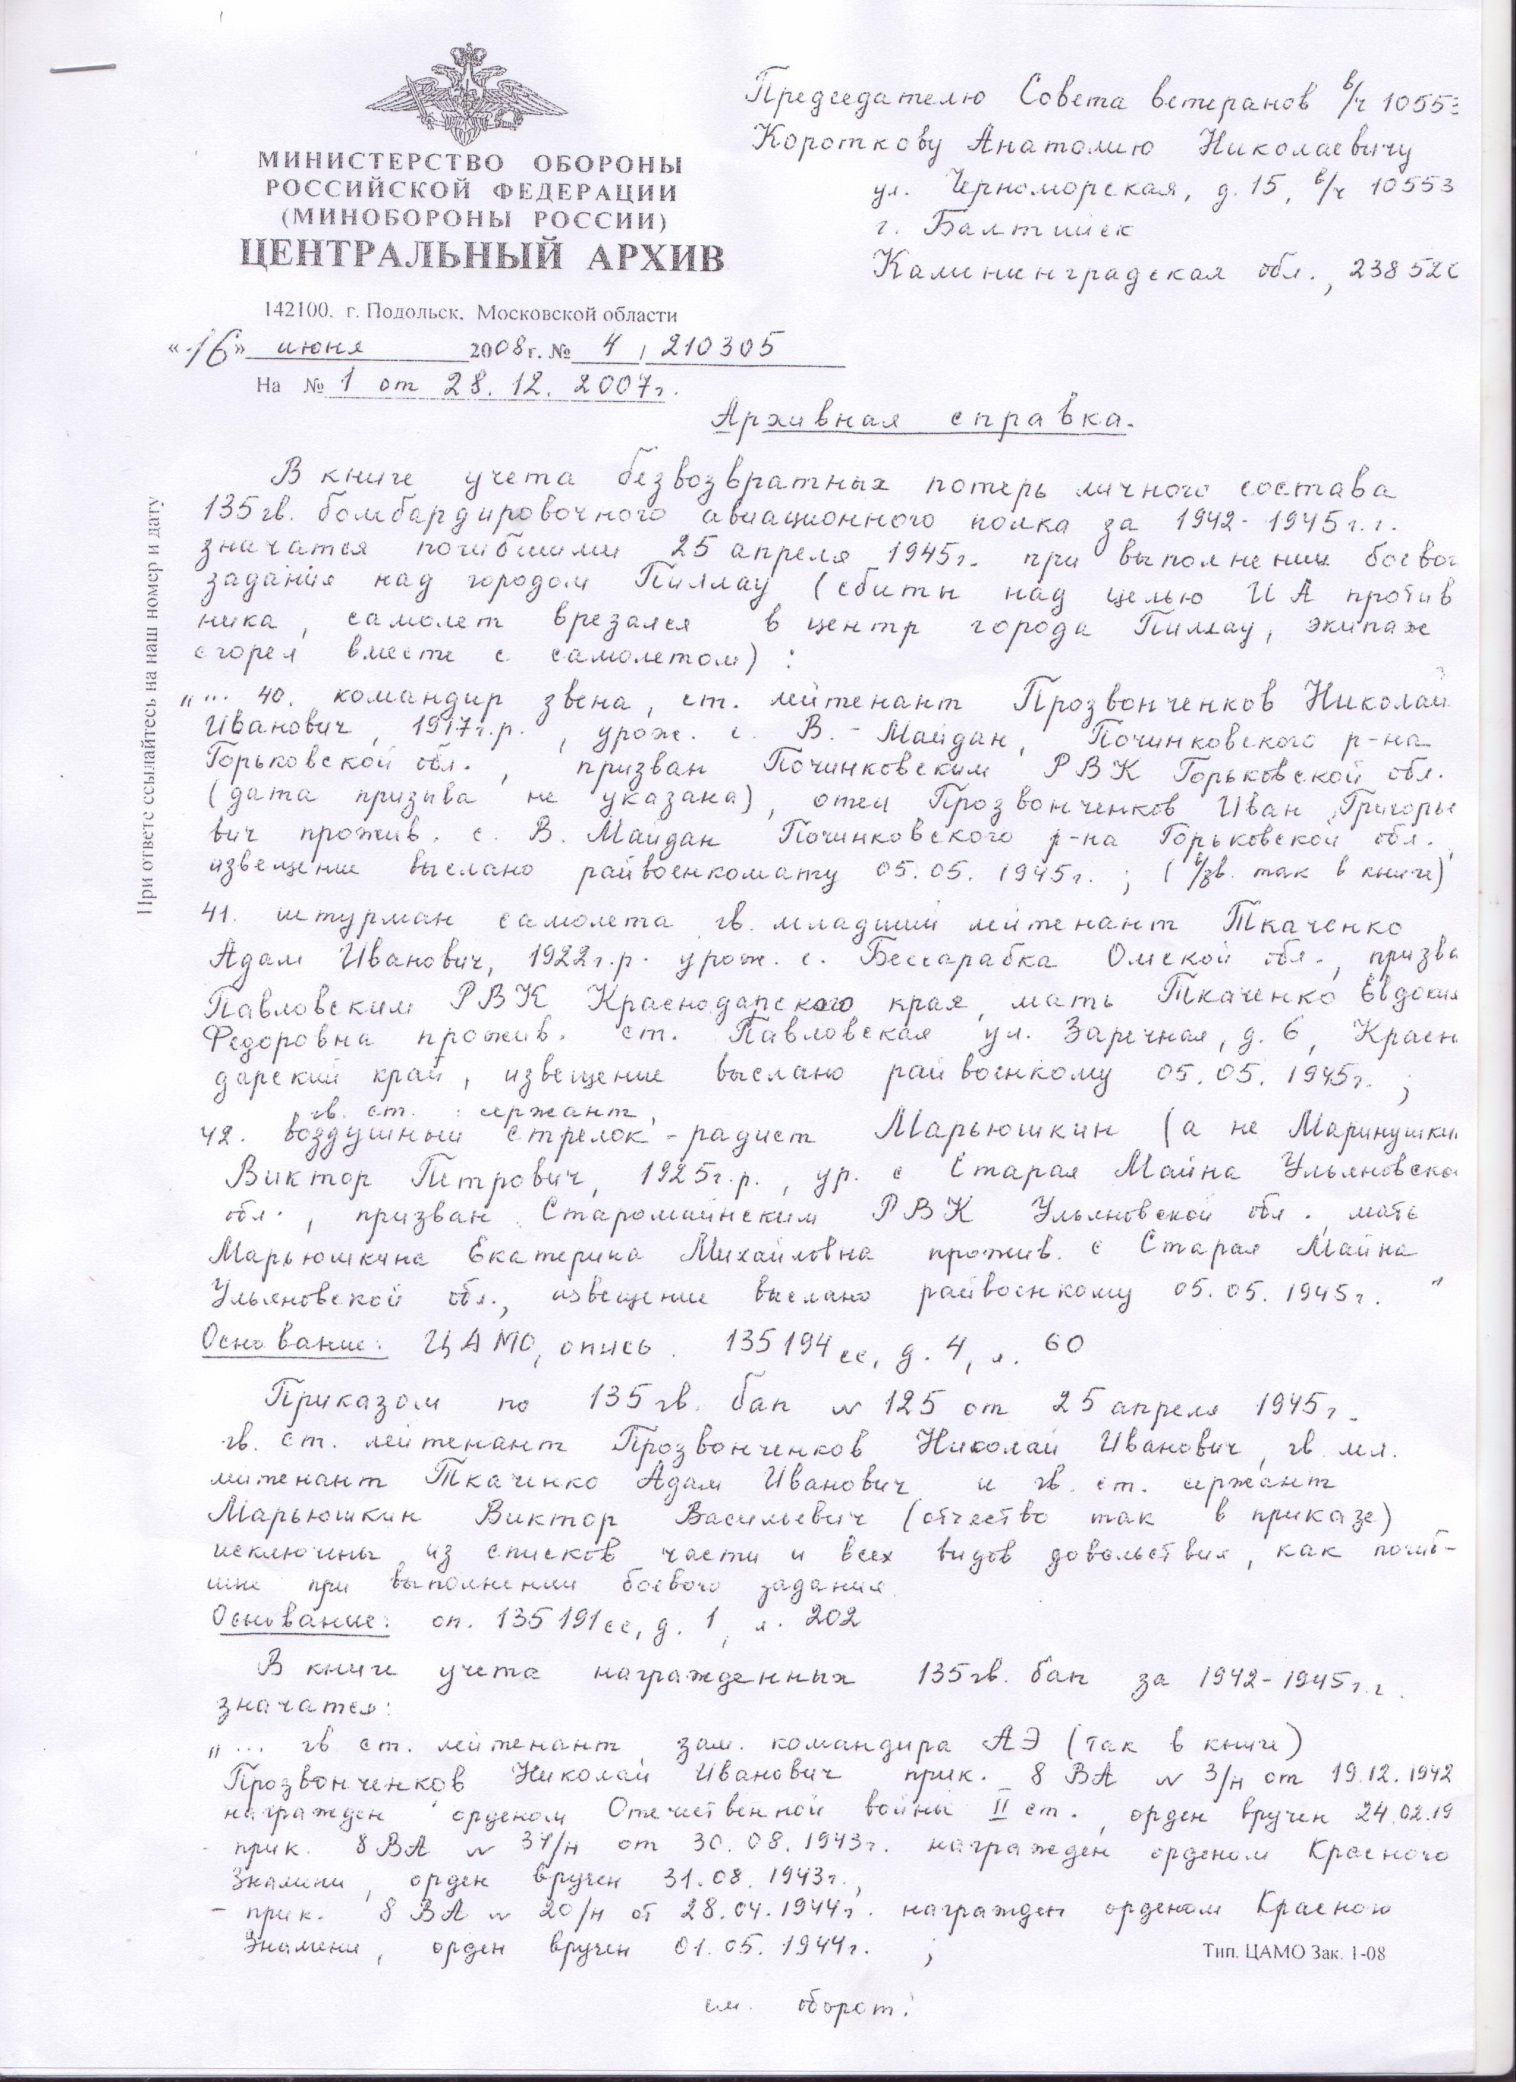 МИНИСТЕРСТВО ОБОРОНЫ
РОССИЙСКОЙ ФЕДЕРАЦИИ
(МИНОБОРОНЫ РОССИИ)
ЦЕНТРАЛЬНЫЙ АРХИВ
142100. г. Подольск. Московской области
«16» июня 2008 г. № 4 / 210305
На № 1 от 28.12.2007г.
Председателю Совета ветеранов в/ч 10553
Короткову Анатолию Николаевичу
ул. Черноморская, д.15, в/ч 10553
г. Балтийск
Калининградская обл., 23852
При ответе ссылайтесь на наш номер и дату
Архивная справка.
В книге учета безвозвратных потерь личного состава
135 гв. бомбардировочного авиационного полка за 1942-1945г.г.
значатся погибшими 25 апреля 1945г. при выполнении боевог
задания над городом Пиллау (сбиты над целью ИА против
ника, самолет врезался в центр города Пиллау, экипаж
сгорел вместе с самолетом) :
„... 40. командир звена, ст. лейтенант Прозвонченков Николай
Иванович, 1917г.р., урож. с. В.-Майдан, Починковского р-на
Горьковской обл., призван Починковским РВК Горьковской обл.
(дата призыва не указана), отец Прозвонченков Иван Григорье
вич прожив. с. В. Майдан Починковского р-на Горьковской обл.,
извещение выслано райвоенкомату 05.05.1945г.; (в/зв. так в книге)
41. штурман самолета гв. младший лейтенант Ткаченко
Адам Иванович, 1922г.р. урож. с. Бессарабка Омской обл., призва
Павловским РВК Краснодарского края, мать Ткаченко Евдокия
Федоровна прожив. ст. Павловская ул. Заречная, д. 6, Красн
дарский край, извещение выслано райвоенкому 05.05.1945г. ;
гв. ст. сержант,
42. воздушный стрелок-радист Марьюшкин (а не Маринушкин
Виктор Петрович, 1925г.р., ур. с Старая Майна Ульяновско
обл., призван Старомайнским РВК Ульяновской обл., мать
Марьюшкина Екатерина Михайловна прожив. с Старая Майна
Ульяновской обл., извещение выслано райвоенкому 05.05.1945г. "
Основание: ЦАМО, опись 135194сс, д. 4, л. 60
Приказом по 135 гв. бап № 125 от 25 апреля 1945г.
гв. ст. лейтенант Прозвонченков Николай Иванович, гв мл.
лейтенант Ткаченко Адам Иванович и гв. ст. сержант
Марьюшкин Виктор Васильевич (отчество так в приказе)
исключены из списков части и всех видов довольствия, как погиб-
шие при выполнении боевого задания.
Основание: оп. 135191сс, д. 1, л. 202
В книге учета награжденных 135 гв. бап за 1942-1945г.г.
значатся:
„... гв ст. лейтенант, зам. командира АЭ (так в книге)
Прозвонченков Николай Иванович прик. 8 ВА № 3/н от 19.12.1942
награжден орденом Отечественной войны II ст., орден вручен 24.02.19
- прик. 8 ВА № 37/н от 30.08.1943г. награжден орденом Красного
Знамени, орден вручен 31.08.1943г.,
- прик. 8 ВА № 20/н от 28.04.1944г. награжден орденом Красного
Знамени, орден вручен 01.05.1944г. ;
Тип. ЦАМО Зак. 1-08
см. оборот.